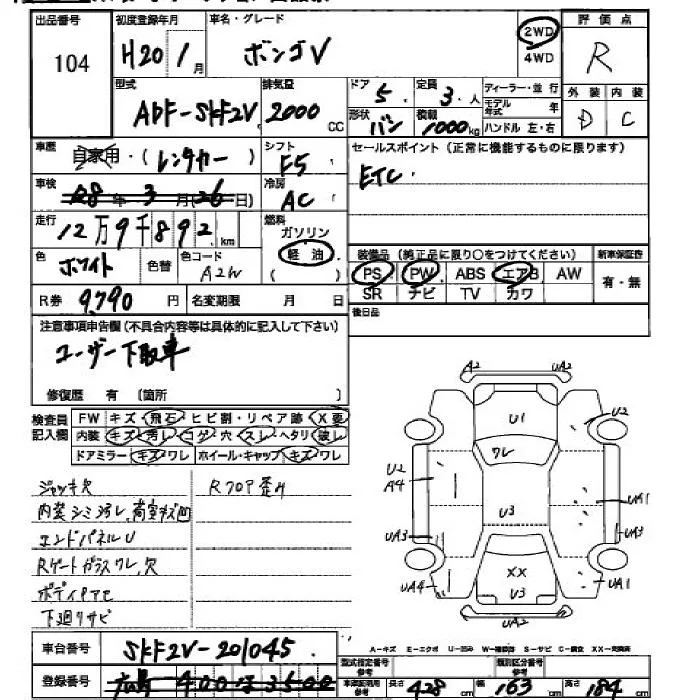 出品番号
104
初度登録年月
H20 / 1月
車名・グレード
ボンゴV
2WD
4WD
評価点
R
型式
ADF-SKF2V
排気量
2000
CC
ドア
5
定員
3.人
ディーラー・並行
モデル年式 年
形状
バン
積載
1000kg
ハンドル 左・右
外装
内装
D
C
車歴
自家用・(レンタカー)
シフト
F5
セールスポイント(正常に機能するものに限ります)
ETC.
車検
R8年3月(26日)
冷房
AC
走行
12万9千892
km
燃料
ガソリン
軽油
( )
色
ホワイト
色替
色コード
A2W
装備品 (純正品に限り○をつけてください)
新車保証書
PS PW ABS エアB AW
SR ナビ TV カワ
有・無
R券
9,790円
名変期限 月 日
後日品
注意事項申告欄(不具合内容等は具体的に記入して下さい)
ユーザー下取車
修復歴 有 〔箇所 〕
検査員
記入欄
FW キズ・飛石・ヒビ割・リペア跡 X要
内装 キズ・汚レ・コゲ・穴・スレ・ヘタリ・破レ
ドアミラー キズ・ワレ ホイール・キャップ キズ・ワレ
ジャッキ欠
Rフロア歪み
内装シミ汚レ、荷室キズ凹
エンドパネルU
Rゲートガラスワレ、欠
ボディ
下廻りサビ
A2
UA2
U1
U2
ワレ
U2
A4
U3
UA1
UA3
UA3
UA4
XX
U3
UA1
UA2
A-キズ E-エクボ U-凹み W-補修跡 S-サビ C-腐蝕 XX-交換済
車台番号
SKF2V-201045
登録番号
広島 400 ほ 3500
型式指定番号
参考
類別区分番号
参考
車検証明用
参考
長さ 428 cm
幅 163 cm
高さ 184 cm